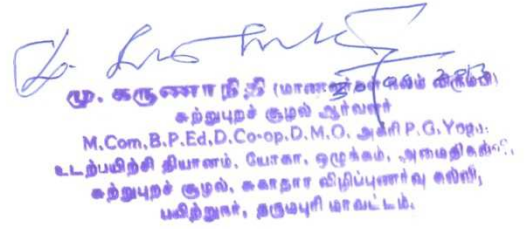 மு. கருணாநிதி (மாணவர்கள் நலம் விரும்பி)
சுற்றுபுறச் சூழல் ஆர்வலர்
M.Com, B.P.Ed, D.Co-op, D.M.O. அக்ரி P.G, Yoga:
உடற்பயிற்சி தியானம், யோகா, ஒழுக்கம், அமைதிகல்வி,
சுற்றுபுறச் சூழல், சுகாதார விழிப்புணர்வு கல்வி,
பயிற்றுநர், தருமபுரி மாவட்டம்.